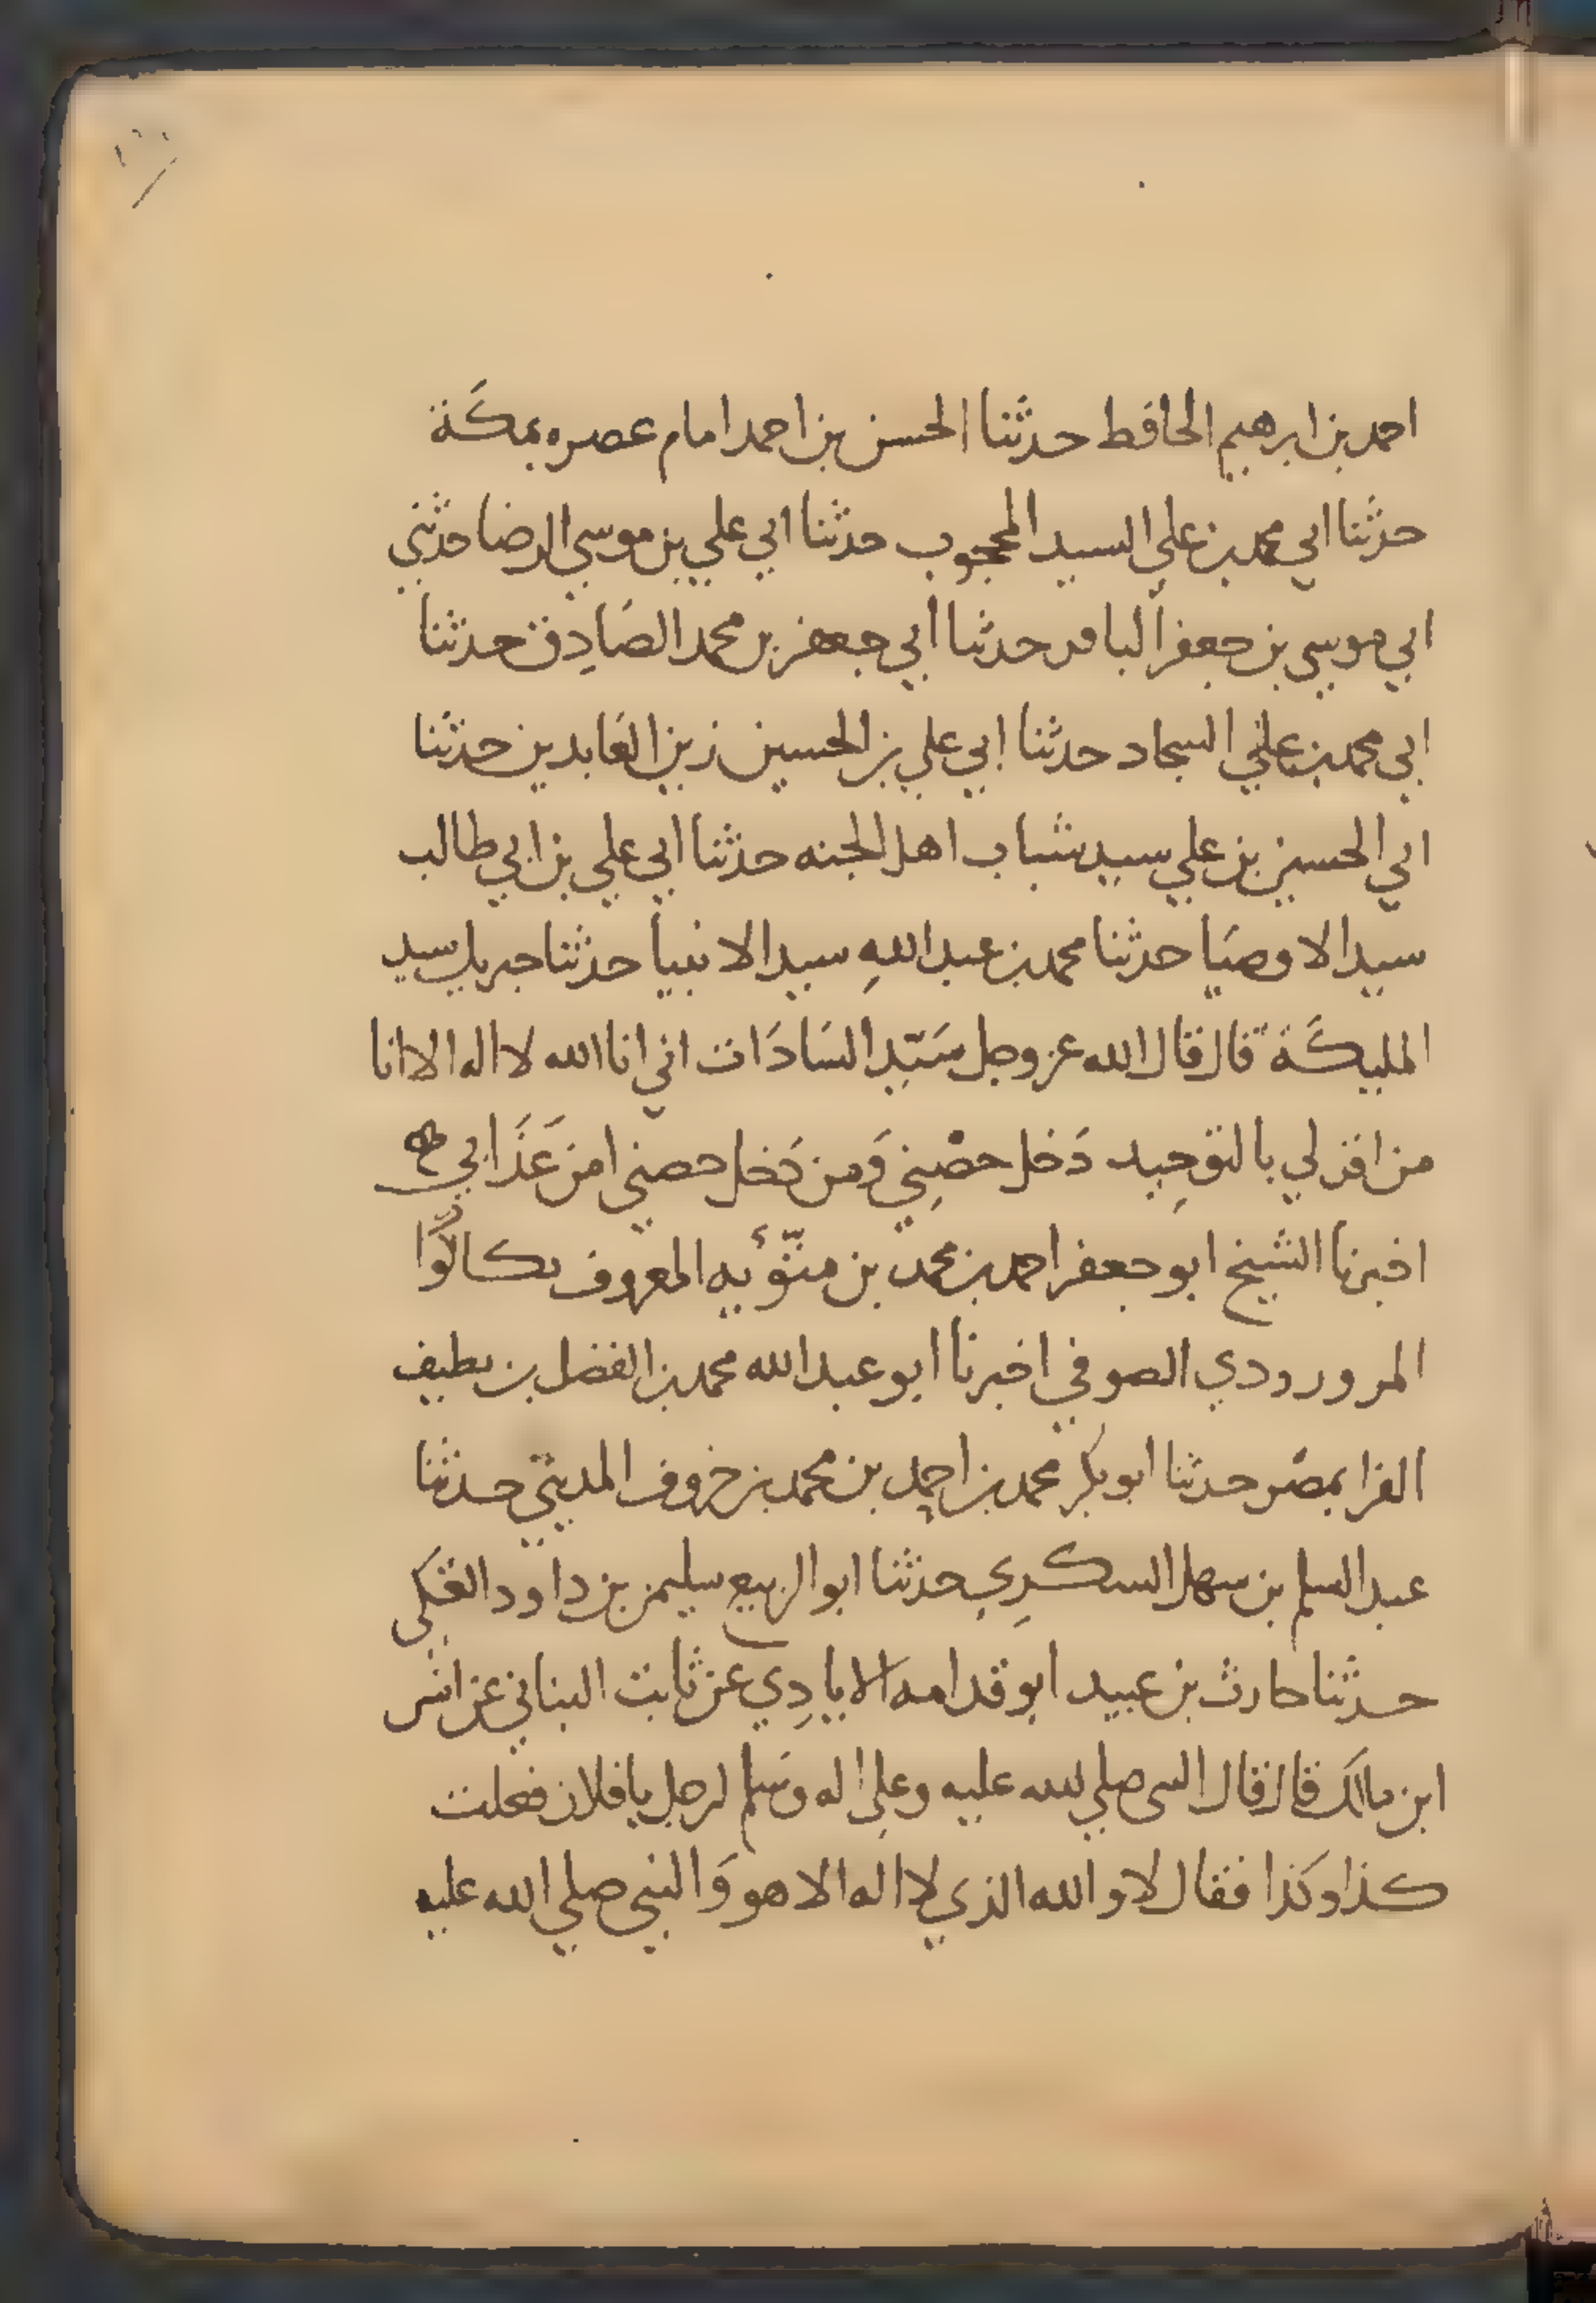 احمد بن ابرهيم الحافظ حدثنا الحسن بن احمد امام عصره بمكَة
حدثنا ابي محمد بن علي السيد المحجوب حدثنا ابي علي بن موسي الرضا حدثني
ابي موسي بن جعفر الباقر حدثنا أبي جعفر بن محمد الصَادِق حدثنا
ابي محمد بن علي السجاد حدثنا ابي علي بن الحسين زين العَابدين حدثنا
ابي الحسين بن علي سيد شباب اهل الجنه حدثنا ابي علي بن ابي طالب
سيد الاوصيَا حدثنا محمد بن عبد اللهِ سيد الانبيا حدثنا جبريل سيد
المليكَة قال قال الله عز وجل سَيّد السَادَات اني انا الله لا اله الا انا
من اقر لي بالتوحِيد دَخل حصْنِي وَمن دَخل حصني امن عَذَابي
اخبرنا الشيخ ابو جعفر احمد بن محمد بن متّويه المعروف بكاكُوا
المروروذي الصوفي اخبرنا ابو عبد الله محمد بن الفضل بن نظيف
الفرا بمصْر حدثنا ابو بكر محمد بن احمد بن محمد بن خروف المديني حدثنا
عبد السلم بن سهل السكرِي حدثنا ابو الربيع سليمن بن داود العَكي
حدثنا حارث بن عبيد ابو قدامه الايادِي عن ثابت البناني عن انس
ابن مالك قال قال النبي صلي الله عليه وعلي اله وسَلم لرجل يا فلان فعلت
كذا وكَذا فقال لا والله الذي لا اله الا هو وَالنبي صلي الله عليه